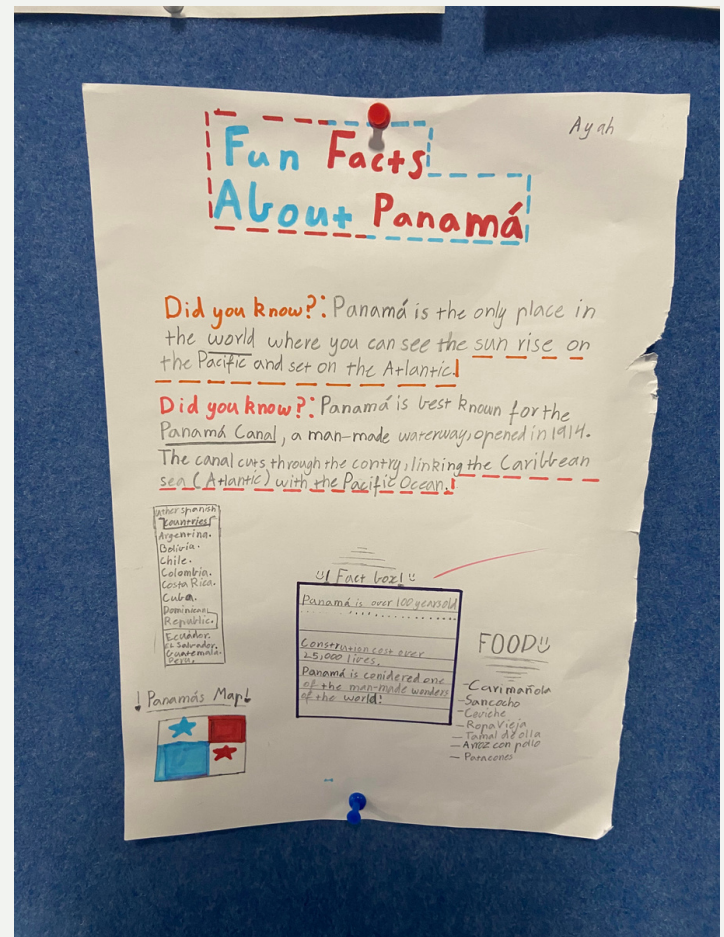 Ayah
Fun Facts
About Panamá
Did you know?: Panamá is the only place in
the world where you can see the sun rise on
the Pacific and set on the Atlantic!
Did you know?: Panamá is best known for the
Panamá Canal, a man-made waterway, opened in 1914.
The canal cuts through the contry, linking the Caribbean
sea (Atlantic) with the Pacific Ocean.!
other spanish
countries
Argentina.
Bolivia.
Chile.
Colombia.
Costa Rica.
Cuba.
Dominican
Republic.
Ecuador.
El Salvador.
Guatemala.
Peru.
! Panamás Map!
! Fact box!
Panamá is over 100 years old
Constrution cost over
25,000 lives.
Panamá is conidered one
of the man-made wonders
of the world!
FOOD
- Carimañola
- Sancocho
- Ceviche
- Ropa Vieja
- Tamal de olla
- Arroz con pollo
- Patacones